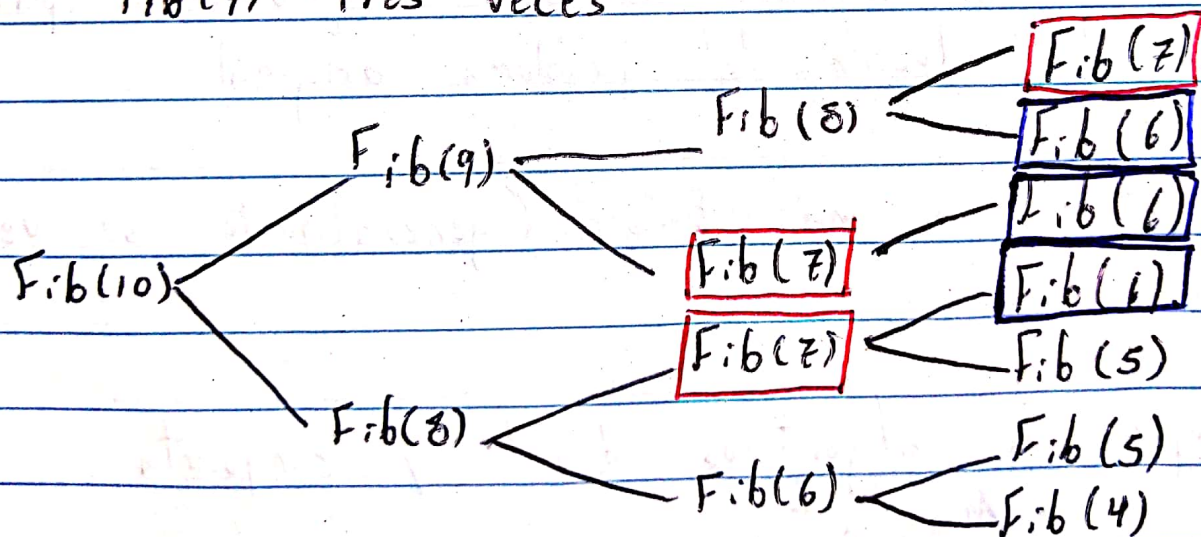 Fib(7) Tres veces
Fib(7)
Fib(8)
Fib(6)
Fib(9)
Fib(6)
Fib(7)
Fib(10)
Fib(6)
Fib(7)
Fib(5)
Fib(8)
Fib(5)
Fib(6)
Fib(4)